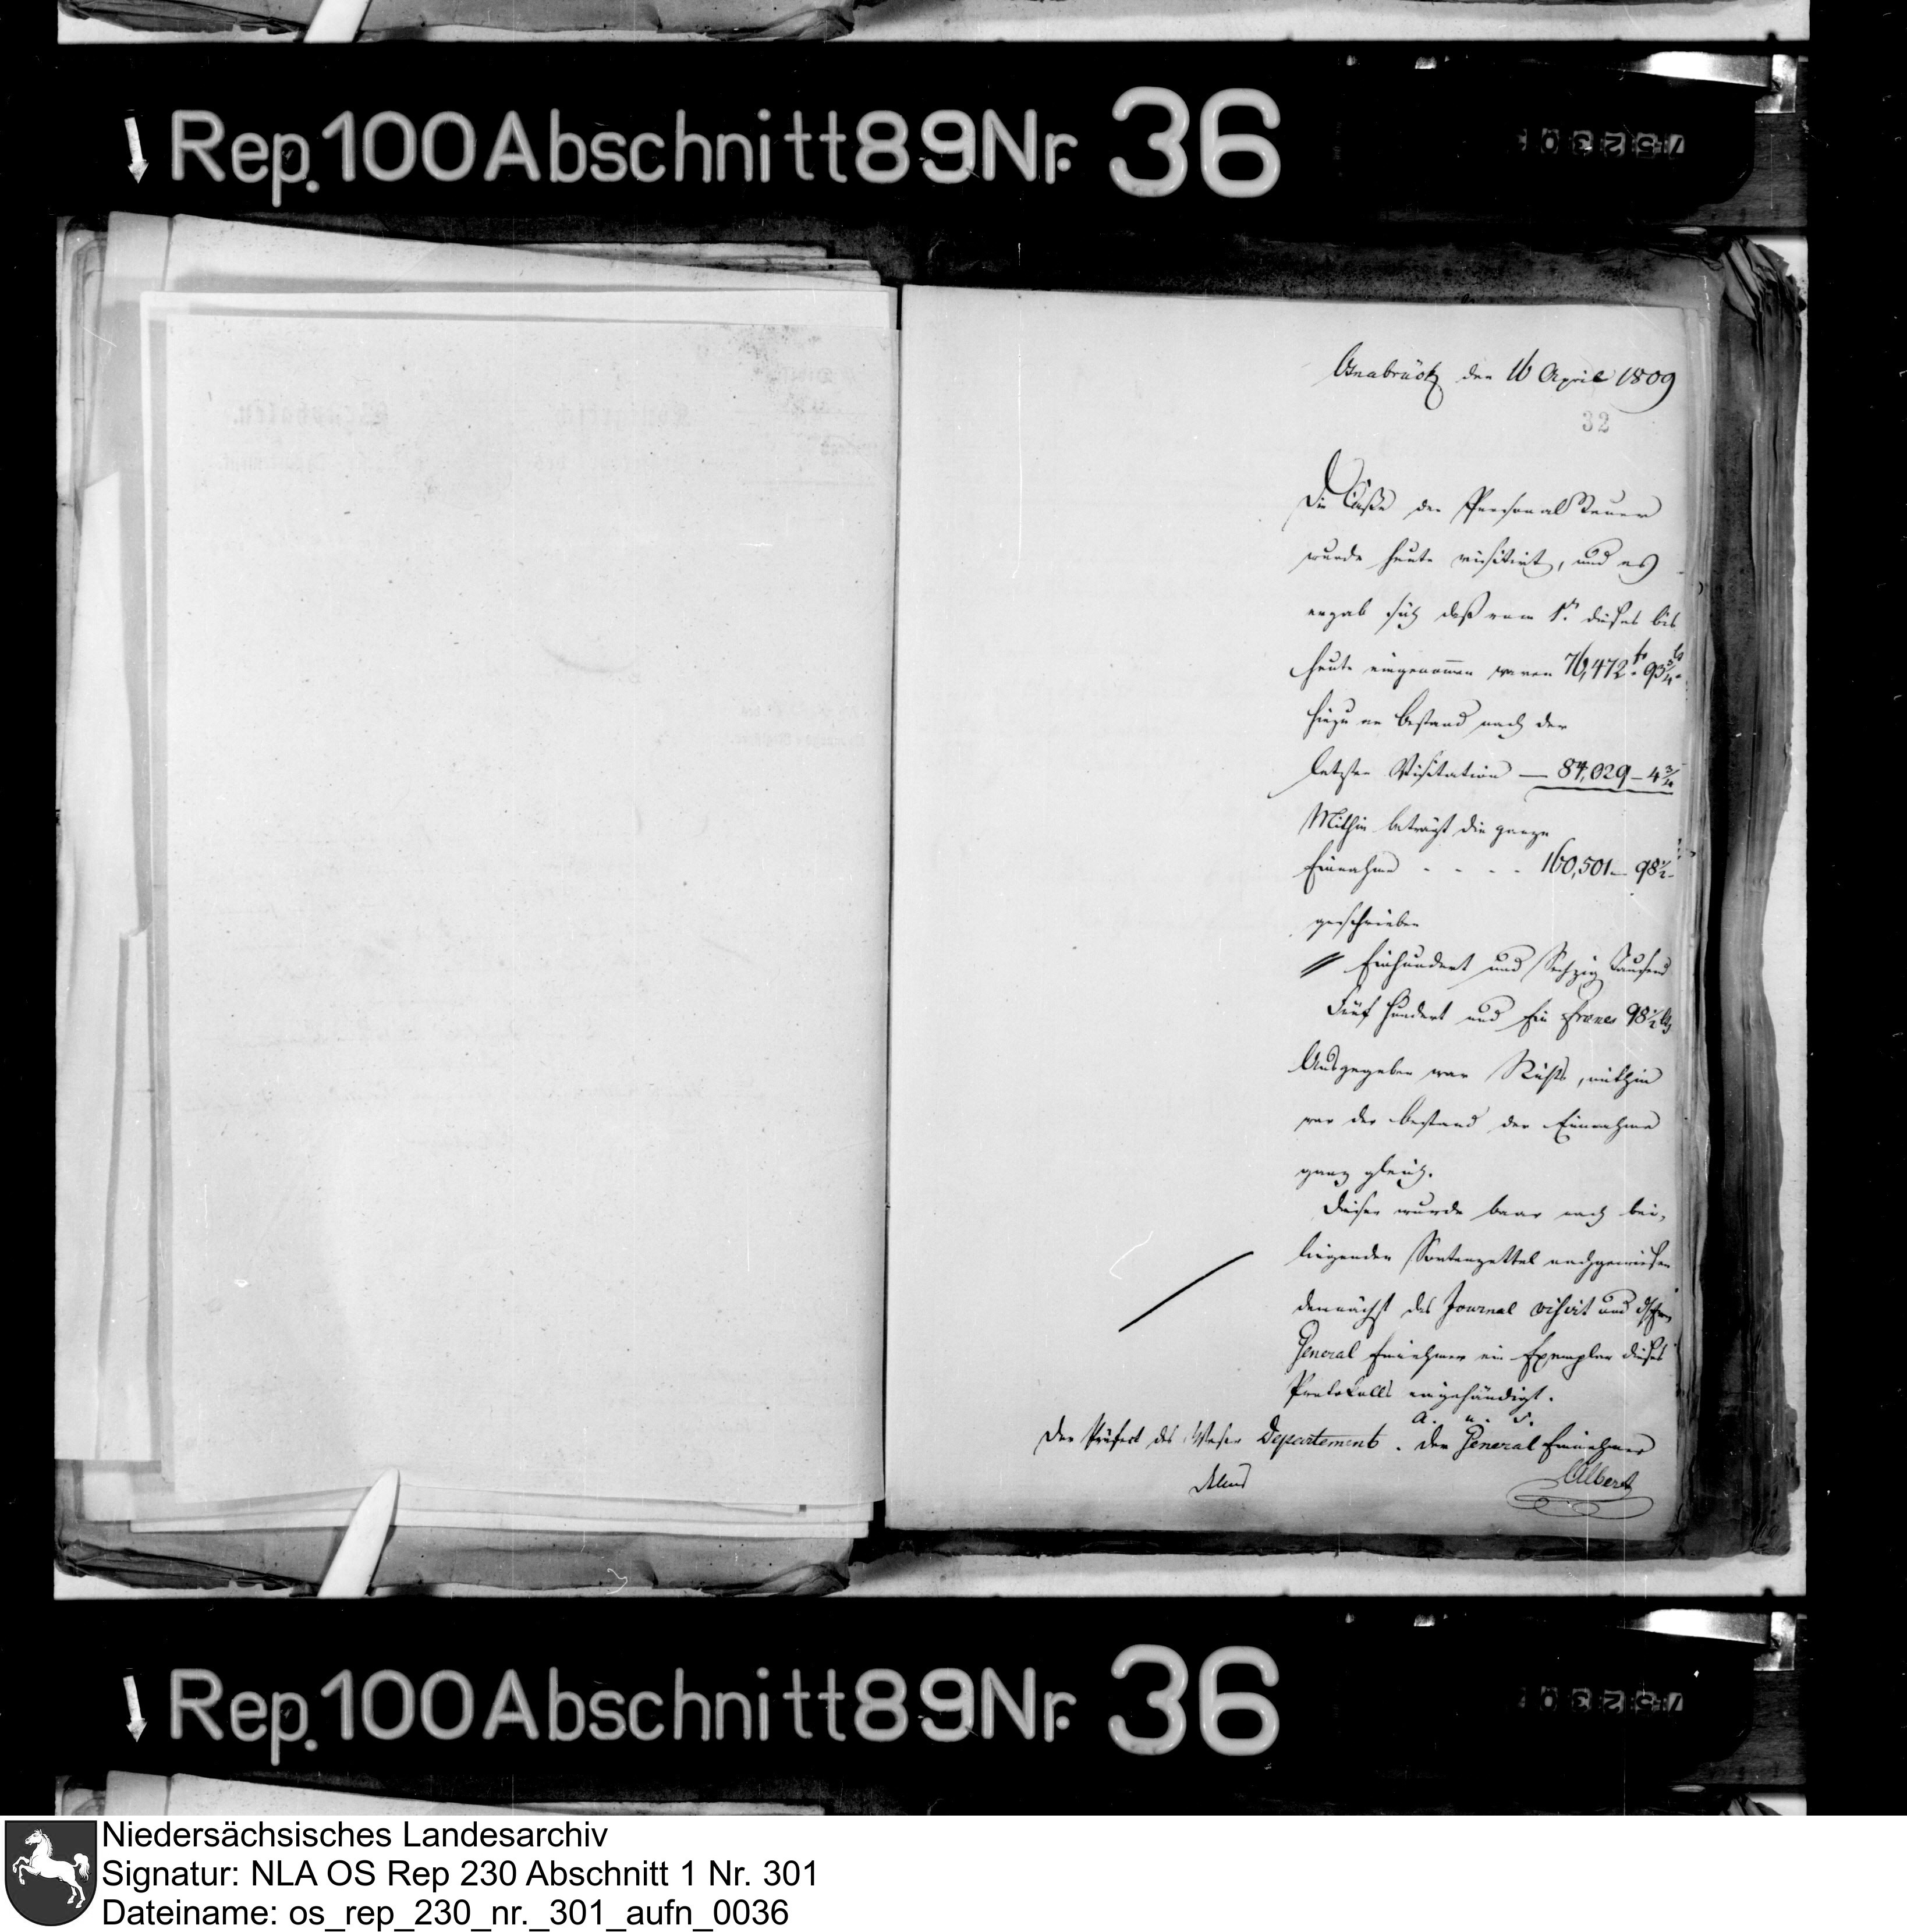 Rep. 100 Abschnitt 89 Nr. 36
Osnabrück den 16 April 1809
32
Die Casse der Personal Steuer
wurde heute visitirt, und es
ergab sich daß vom 1t. dieses bis
heute eingenom̅en waren 76,472 fr. 93 3/4 ts
hiezu an Bestand nach der
letzten Visitation — 84,029 — 4 3/4
Mithin beträgt die ganze
Einnahme - - - - 160,501 — 98 1/2
geschrieben
// Einhundert und Sechzig Tausend
Fünf hundert und Ein Francs 98 1/2 ts
Ausgegeben war Nichts, mithin
war der Bestand der Einnahme
ganz gleich.
Dieser wurde baar nach bei-
liegenden Sortenzettel nachgewiesen
demnächst das Journal visirt und
General Einnehmer ein Exemplar dieses
Protokolls eingehändigt.
a. u. s.
Der Präfect des Weser Departements. Der General Einnehmer
Albert
Rep. 100 Abschnitt 89 Nr. 36
Niedersächsisches Landesarchiv
Signatur: NLA OS Rep 230 Abschnitt 1 Nr. 301
Dateiname: os_rep_230_nr._301_aufn_0036